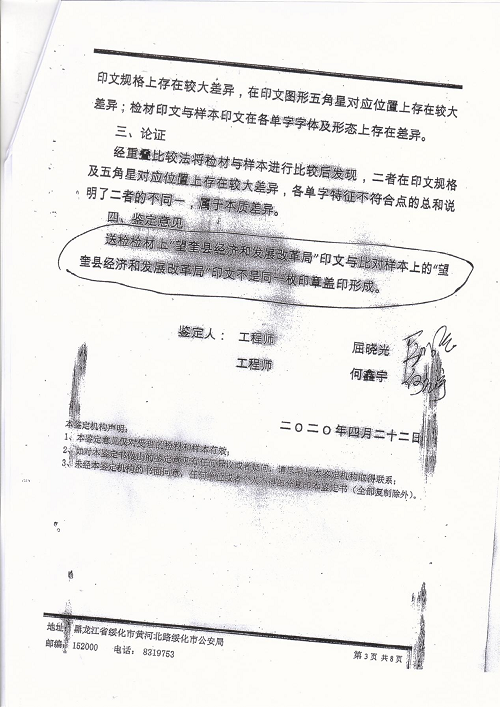 印文规格上存在较大差异，在印文图形五角星对应位置上存在较大
差异；检材印文与样本印文在各单字字体及形态上存在差异。
三、论证
经重叠比较法将检材与样本进行比较后发现，二者在印文规格
及五角星对应位置上存在较大差异，各单字特征不符合点的总和说
明了二者的不同一，属于本质差异。
四、鉴定意见
送检检材上“望奎县经济和发展改革局”印文与比对样本上的“望
奎县经济和发展改革局”印文不是同一枚印章盖印形成。
鉴定人： 工程师 屈晓光
工程师 何鑫宇
二〇二〇年四月二十二日
本鉴定机构声明：
1、本鉴定意见仅对送检的检材和样本有效；
2、如对本鉴定书做出的鉴定意见有任何异议或者疑问，请与本鉴定机构取得联系；
3、未经本鉴定机构的书面同意，任何 本鉴定书（全部复制除外）。
地址：黑龙江省绥化市黄河北路绥化市公安局
邮编：152000 电话：8319753
第 3 页 共 8 页